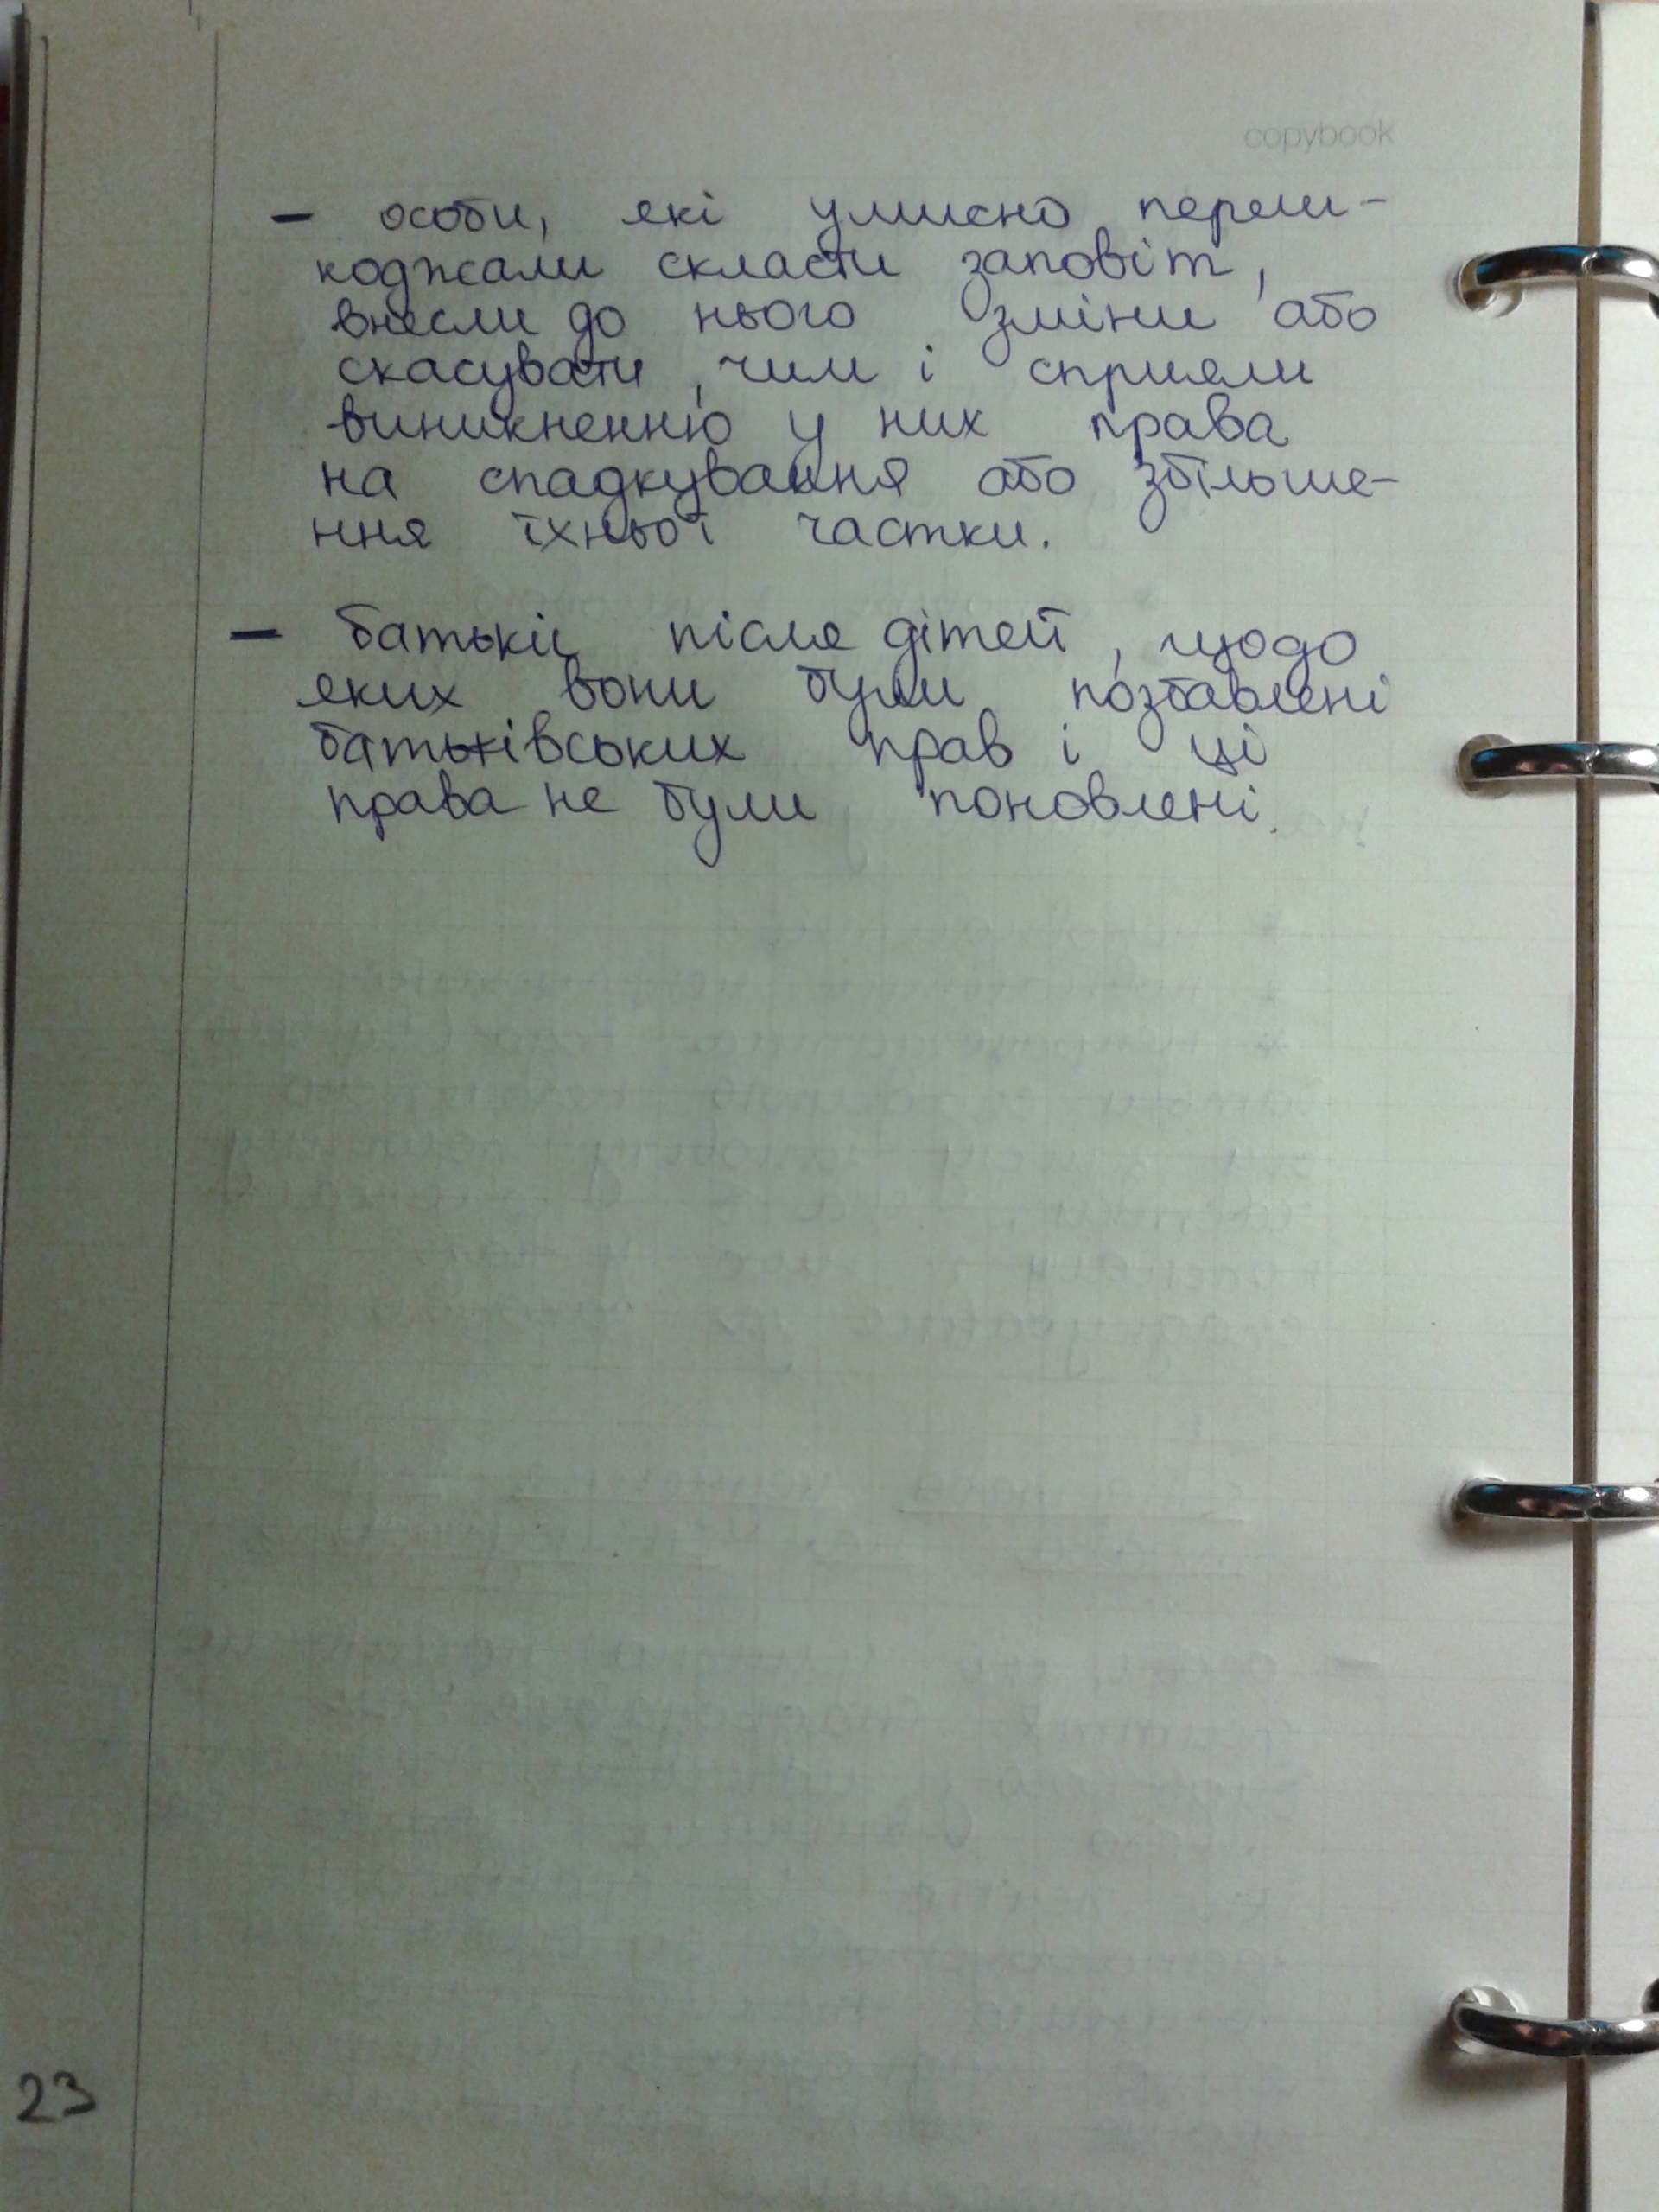 copybook
– особи, які умисно переш-
коджали скласти заповіт,
внесли до нього зміни або
скасувати, чим і сприяли
виникненню у них права
на спадкування або збільше-
ння їхньої частки.
– батьки після дітей, щодо
яких вони були позбавлені
батьківських прав і ці
права не були поновлені.
23